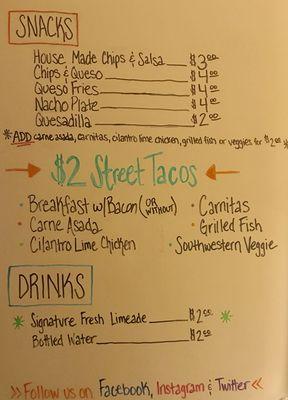 SNACKS
House Made Chips & Salsa $3.00
Chips & Queso $4.00
Queso Fries $4.00
Nacho Plate $4.00
Quesadilla $2.00
*ADD carne asada, carnitas, cilantro lime chicken, grilled fish or veggies for $2.00*
$2 Street Tacos
• Breakfast w/Bacon (OR WITHOUT) • Carnitas
• Carne Asada • Grilled Fish
• Cilantro Lime Chicken • Southwestern Veggie
DRINKS
* Signature Fresh Limeade $2.00 *
Bottled Water $2.00
>> Follow us on Facebook, Instagram & Twitter <<